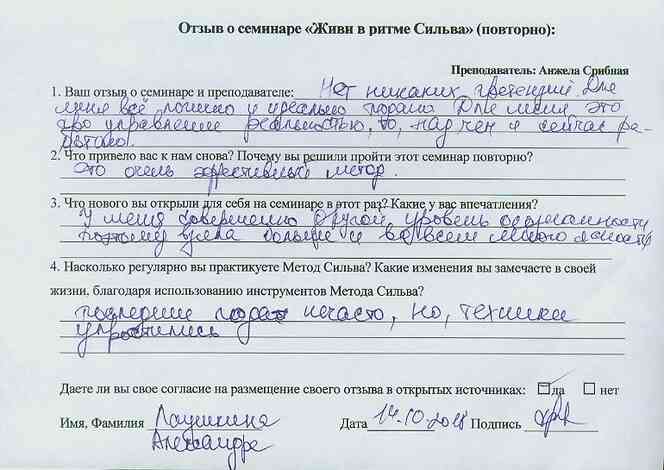 Отзыв о семинаре «Живи в ритме Сильва» (повторно):
Преподаватель: Анжела Срибная
1. Ваш отзыв о семинаре и преподавателе: Нет никаких претензий. Для
меня всё логично и идеально подано. Для меня это
про управление реальностью, то, над чем я сейчас ра-
ботаю.
2. Что привело вас к нам снова? Почему вы решили пройти этот семинар повторно?
Это очень эффективный метод.
3. Что нового вы открыли для себя на семинаре в этот раз? Какие у вас впечатления?
У меня совершенно другой уровень осознанности
поэтому взяла больше и во всем много ясности
4. Насколько регулярно вы практикуете Метод Сильва? Какие изменения вы замечаете в своей
жизни, благодаря использованию инструментов Метода Сильва?
последние года нечасто, но, техники
упростились
Даете ли вы свое согласие на размещение своего отзыва в открытых источниках: да нет
Имя, Фамилия Лаушкина Дата 14.10.2018 Подпись
Александра